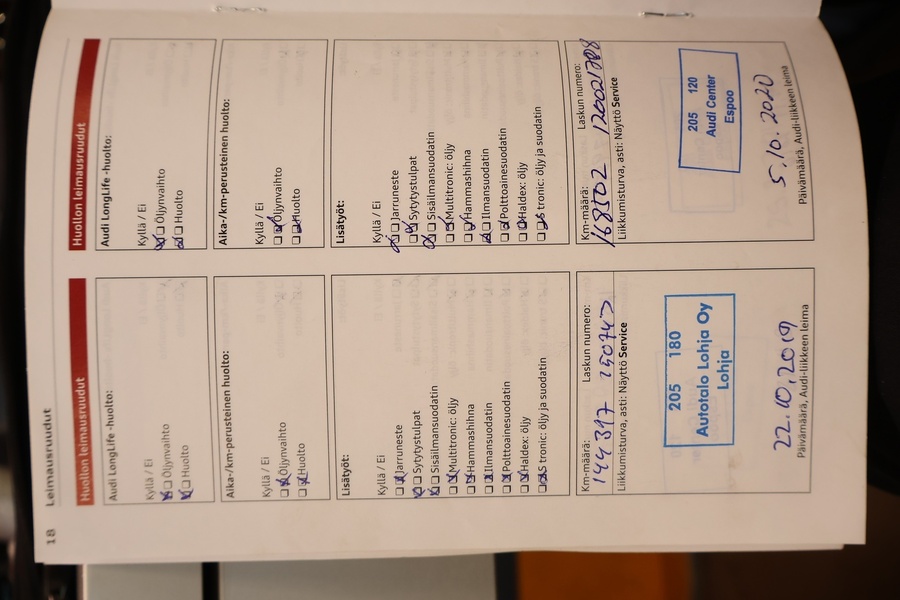 18 Leimausruudut
Huollon leimausruudut
Audi LongLife -huolto:
Kyllä / Ei
Öljynvaihto
Huolto
Aika-/km-perusteinen huolto:
Kyllä / Ei
Öljynvaihto
Huolto
Lisätyöt:
Kyllä / Ei
Jarruneste
Sytytystulpat
Sisäilmansuodatin
Multitronic: öljy
Hammashihna
Ilmansuodatin
Polttoainesuodatin
Haldex: öljy
S tronic: öljy ja suodatin
Km-määrä: Laskun numero:
144397 250747
Liikkumisturva, asti: Näyttö Service
205 180
Autotalo Lohja Oy
Lohja
22.10.2019
Päivämäärä, Audi-liikkeen leima
Huollon leimausruudut
Audi LongLife -huolto:
Kyllä / Ei
Öljynvaihto
Huolto
Aika-/km-perusteinen huolto:
Kyllä / Ei
Öljynvaihto
Huolto
Lisätyöt:
Kyllä / Ei
Jarruneste
Sytytystulpat
Sisäilmansuodatin
Multitronic: öljy
Hammashihna
Ilmansuodatin
Polttoainesuodatin
Haldex: öljy
S tronic: öljy ja suodatin
Km-määrä: Laskun numero:
168502
Liikkumisturva, asti: Näyttö Service
205 120
Audi Center
Espoo
5.10.2020
Päivämäärä, Audi-liikkeen leima